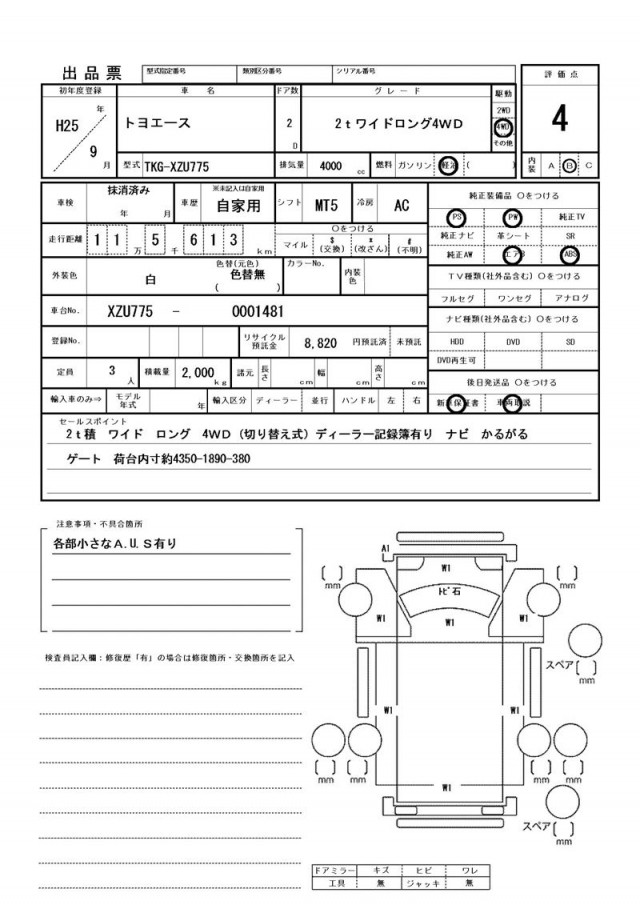 出品票 型式指定番号 類別区分番号 シリアル番号
評価点
初年度登録 車名 ドア数 グレード 駆動
H25 年 9 月 トヨエース 2 D 2tワイドロング4WD 2WD 4WD その他 4
型式 TKG-XZU775 排気量 4000 cc 燃料 ガソリン 軽油 ( ) 内装 A B C
車検 抹消済み 年 月 車歴 ※未記入は自家用 自家用 シフト MT5 冷房 AC 純正装備品 〇をつける
PS PW 純正TV
走行距離 1 1 万 5 千 6 1 3 km 〇をつける マイル $(交換) *(改ざん) #(不明) 純正ナビ 革シート SR
純正AW エアB ABS
外装色 白 色替(元色) 色替無 ( ) カラーNo. 内装色 TV種類(社外品含む) 〇をつける
フルセグ ワンセグ アナログ
車台No. XZU775 - 0001481 ナビ種類(社外品含む) 〇をつける
登録No. リサイクル預託金 8,820 円預託済 未預託 HDD DVD SD
DVD再生可
定員 3 人 積載量 2,000 kg 諸元 長さ cm 幅 cm 高さ cm 後日発送品 〇をつける
輸入車のみ⇒ モデル年式 年 輸入区分 ディーラー 並行 ハンドル 左 右 新車保証書 車両取説
セールスポイント
2t積 ワイド ロング 4WD (切り替え式) ディーラー記録簿有り ナビ かるがる
ゲート 荷台内寸約4350-1890-380
注意事項・不具合箇所
各部小さなA.U.S有り
検査員記入欄:修復歴「有」の場合は修復箇所・交換箇所を記入
A1
W1
mm ﾄﾋﾞ石 mm
W1 W1 W1
スペア
mm
W1 W1
mm mm mm mm
W1
スペア
mm
ドアミラー キズ ヒビ ワレ
工具 無 ジャッキ 無